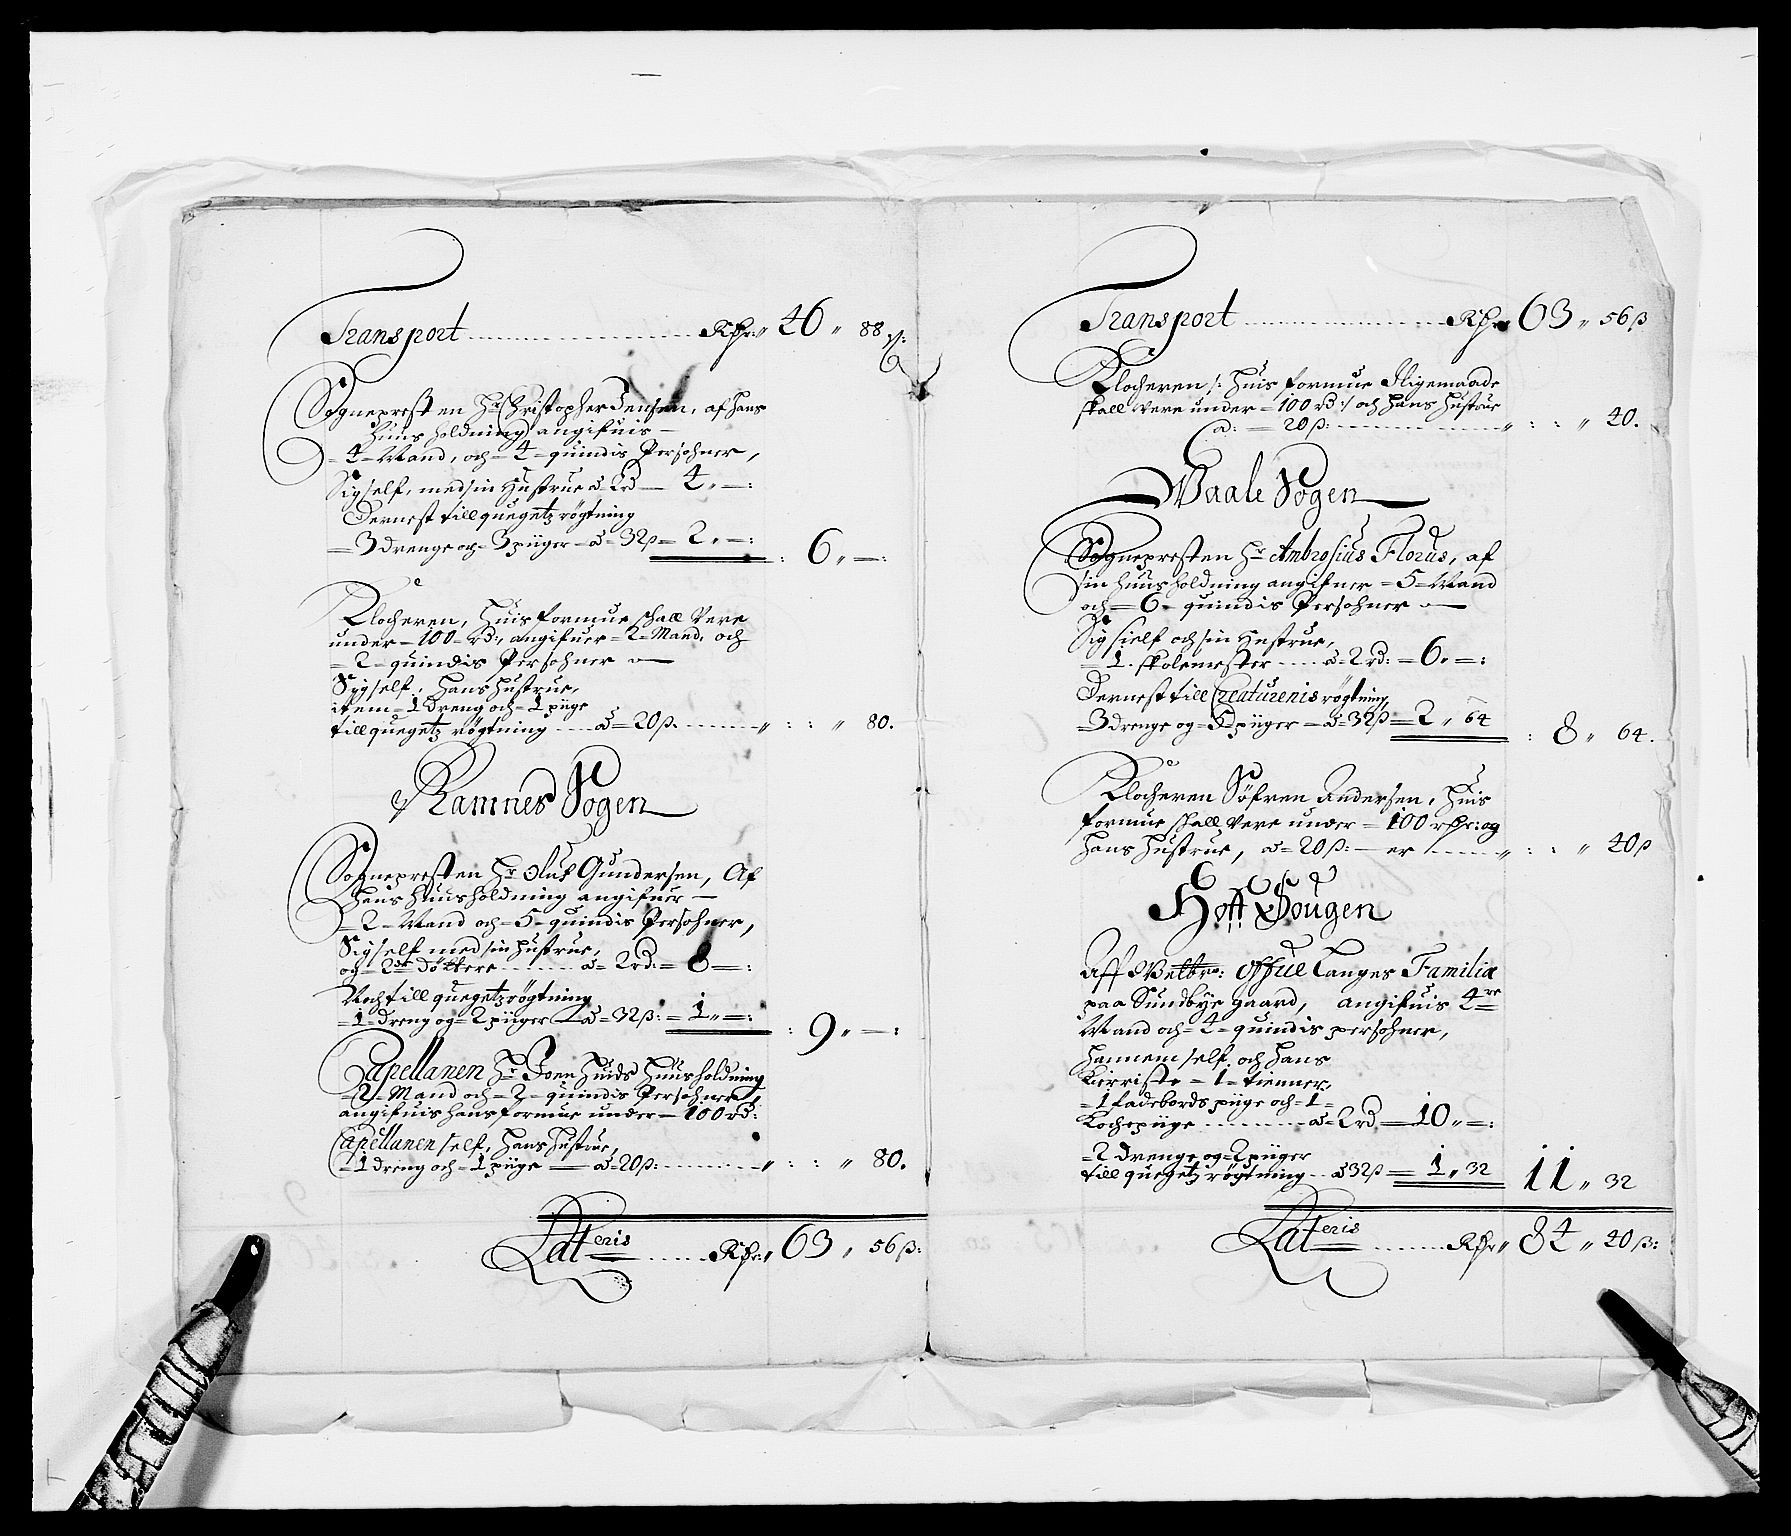 Transport Rdr: 46 " 88 ß:
Sognepresten Hr Christopher Jensen, af hans
huus holdning angifuis —
= 4 = Mand, och = 4 = quindis Persohner,
Sig self, med sin Hustrue à 2 rd — 4 " — :
Dernest till quegetz røgtning
= 3 drenge och = 3 piiger — à = 32 ß = 2 " — : 6 " — :
Klocheren, huis formue schall Vere
under = 100 = rd:, angifuer = 2 = Mand, och
= 2 = quindis Persohner —
Sig self, hans hustrue,
item = 1 dreng och = 1 piige
till quegetz røgtning à = 20 ß. " : : " 80.
Ramnes Sogen
Sognepresten Hr Oluf Gundersen, Af
hans huusholdning angifuer —
= 2 = Mand och = 5 = quindis Persohner,
Sig self med sin hustrue,
og = 2de døttere à = 2 rd: = 8 — :
Noch till quegetz røgtning
= 1 = dreng og = 2 piiger — à = 32 ß: = 1 " — : 9 " — :
Capellanen Hr Joen huids huusholdning
= 2 = Mand och = 2 = quindis Persohner,
angifuis hans formue under = 100 rd:
Capellanen self, hans hustrue,
= 1 dreng och = 1 piige — à = 20 ß: " : : " 80.
Lateris Rdr: " 63 " 56 ß:
Transport Rdr 63 " 56 ß
Klocheren /: huis formue Iligemaade
skall Vere under = 100 rd :/ och hans hustrue
a: = 20 ß: " : : " 40.
Waale Sogen
Sognepresten Hr Ambrosius Florus, af
sin huus holdning angifuer = 5 = Mand
och = 6 = quindis Persohner —
Sig sielf och sin Hustrue,
= 1. skolemester à 2 rd: = 6. = :
Dernest till Creaturenis røgtning,
= 3 drenge og = 5 piiger — à = 32 ß = 2 " 64 : 8 " 64.
Klocheren Søfren Andersen, huis
formue skall Vere under = 100 rdr: og
hans hustrue, à = 20 ß: — er " : : " 40 ß
Hoff Sougen
Aff Welbr: Offue Langes Familiæ
paa Sundbye gaard, angifuis 4re
Mand och = 4 = quindis persohner,
hannem self, och hans
Kierriste = 1 = tienner,
= 1 fadebords piige och = 1 =
Kochepiige à = 2 rd. = 10 " = :
= 2 drenge og = 2 piiger
till quegetz røgtning à 32 ß = 1 " 32 11 " 32
Lateris Rdr " 84 " 40 ß: